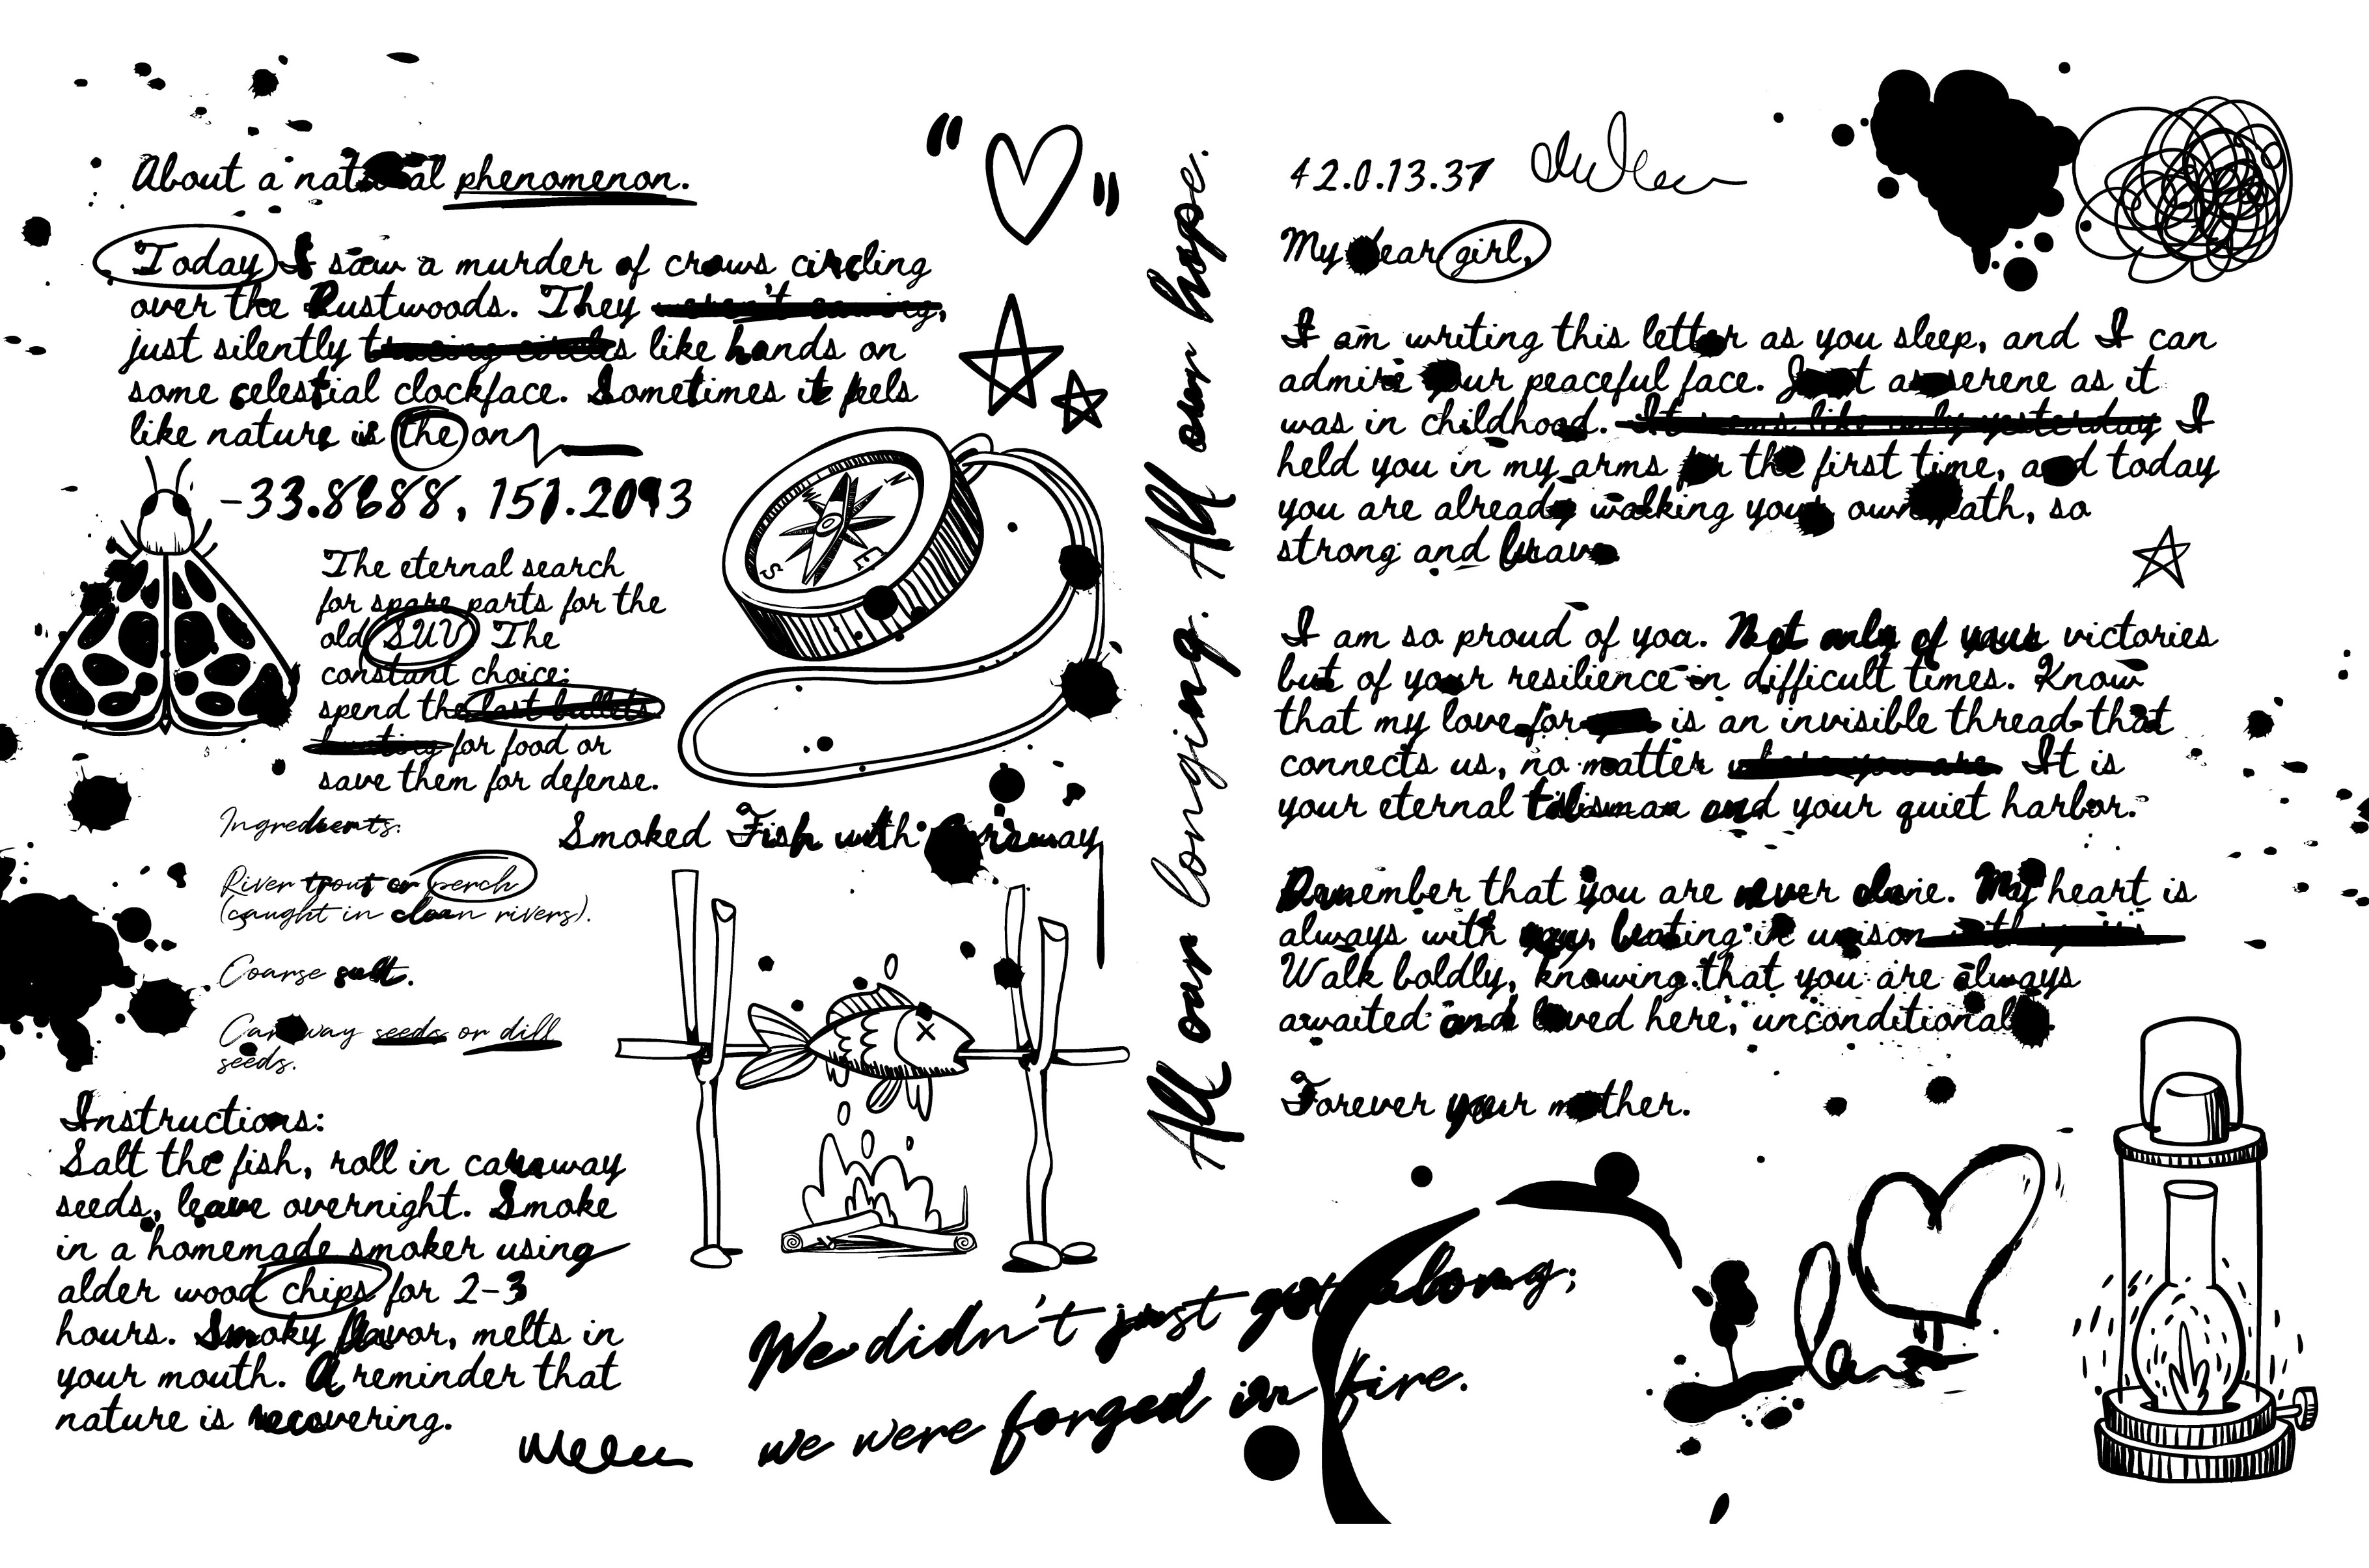 About a natural phenomenon.
Today I saw a murder of crows circling
over the Rustwoods. They weren't cawing,
just silently tracing circles like hands on
some celestial clockface. Sometimes it feels
like nature is the on
-33.8688, 151.2093
The eternal search
for spare parts for the
old SUV The
constant choice:
spend the last bullets
hunting for food or
save them for defense.
Ingredients:
River trout or perch
(caught in clean rivers).
Coarse salt.
Caraway seeds or dill
seeds.
Smoked Fish with Caraway
Instructions:
Salt the fish, roll in caraway
seeds, leave overnight. Smoke
in a homemade smoker using
alder wood chips for 2-3
hours. Smoky flavor, melts in
your mouth. A reminder that
nature is recovering.
N
E
S
W
We didn't just get along;
we were forged in fire.
All our longing. All our hope.
42.0.13.37
My dear girl,
I am writing this letter as you sleep, and I can
admire your peaceful face. Just as serene as it
was in childhood. It seems like only yesterday I
held you in my arms for the first time, and today
you are already walking your own path, so
strong and brave
I am so proud of you. Not only of your victories
but of your resilience in difficult times. Know
that my love for is an invisible thread that
connects us, no matter where you are. It is
your eternal talisman and your quiet harbor.
Remember that you are never alone. My heart is
always with you, beating in unison
Walk boldly, knowing that you are always
awaited and loved here, unconditionally.
Forever your mother.